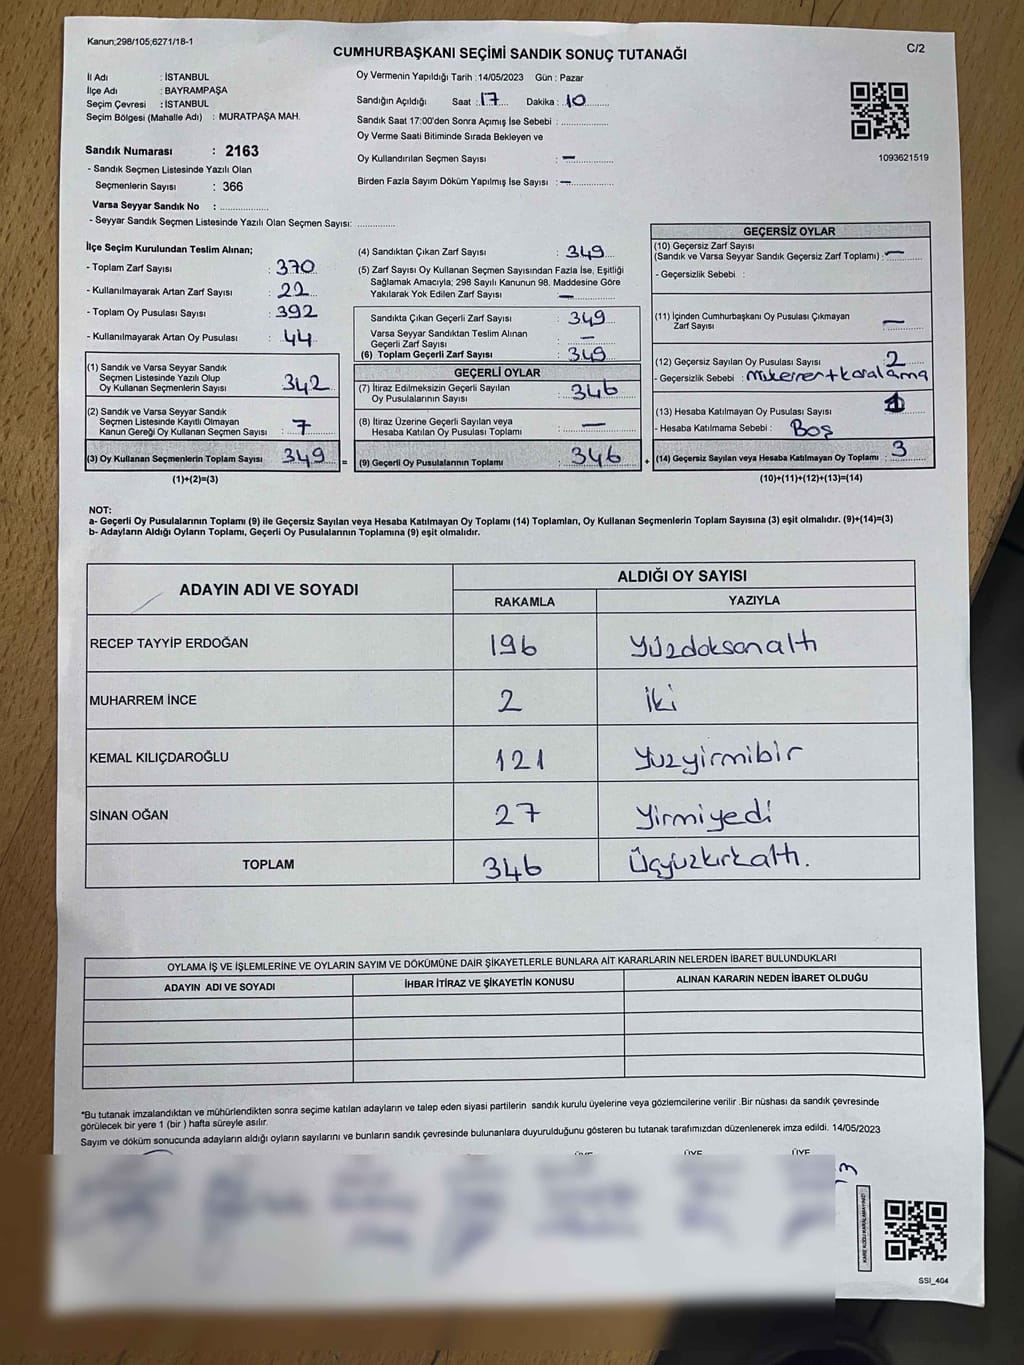 Kanun;298/105;6271/18-1
C/2
CUMHURBAŞKANI SEÇİMİ SANDIK SONUÇ TUTANAĞI
İl Adı : İSTANBUL
İlçe Adı : BAYRAMPAŞA
Seçim Çevresi : İSTANBUL
Seçim Bölgesi (Mahalle Adı) : MURATPAŞA MAH.
Sandık Numarası : 2163
- Sandık Seçmen Listesinde Yazılı Olan
Seçmenlerin Sayısı : 366
Varsa Seyyar Sandık No :
- Seyyar Sandık Seçmen Listesinde Yazılı Olan Seçmen Sayısı:
Oy Vermenin Yapıldığı Tarih :14/05/2023 Gün : Pazar
Sandığın Açıldığı Saat : 17 Dakika : 10
Sandık Saat 17:00'den Sonra Açımış İse Sebebi :
Oy Verme Saati Bitiminde Sırada Bekleyen ve
Oy Kullandırılan Seçmen Sayısı : —
Birden Fazla Sayım Döküm Yapılmış İse Sayısı : —
1093621519
İlçe Seçim Kurulundan Teslim Alınan;
- Toplam Zarf Sayısı : 370
- Kullanılmayarak Artan Zarf Sayısı : 22
- Toplam Oy Pusulası Sayısı : 392
- Kullanılmayarak Artan Oy Pusulası : 44
(1) Sandık ve Varsa Seyyar Sandık
Seçmen Listesinde Yazılı Olup
Oy Kullanan Seçmenlerin Sayısı : 342
(2) Sandık ve Varsa Seyyar Sandık
Seçmen Listesinde Kayıtlı Olmayan
Kanun Gereği Oy Kullanan Seçmen Sayısı : 7
(3) Oy Kullanan Seçmenlerin Toplam Sayısı : 349 =
(1)+(2)=(3)
(4) Sandıktan Çıkan Zarf Sayısı : 349
(5) Zarf Sayısı Oy Kullanan Seçmen Sayısından Fazla İse, Eşitliği
Sağlamak Amacıyla; 298 Sayılı Kanunun 98. Maddesine Göre
Yakılarak Yok Edilen Zarf Sayısı : —
Sandıkta Çıkan Geçerli Zarf Sayısı : 349
Varsa Seyyar Sandıktan Teslim Alınan
Geçerli Zarf Sayısı : —
(6) Toplam Geçerli Zarf Sayısı : 349
GEÇERLİ OYLAR
(7) İtiraz Edilmeksizin Geçerli Sayılan
Oy Pusulalarının Sayısı : 346
(8) İtiraz Üzerine Geçerli Sayılan veya
Hesaba Katılan Oy Pusulası Toplamı : —
(9) Geçerli Oy Pusulalarının Toplamı : 346 +
GEÇERSİZ OYLAR
(10) Geçersiz Zarf Sayısı
(Sandık ve Varsa Seyyar Sandık Geçersiz Zarf Toplamı) : —
- Geçersizlik Sebebi :
(11) İçinden Cumhurbaşkanı Oy Pusulası Çıkmayan
Zarf Sayısı : —
(12) Geçersiz Sayılan Oy Pusulası Sayısı : 2
- Geçersizlik Sebebi : mükerrer+karalama
(13) Hesaba Katılmayan Oy Pusulası Sayısı : 1
- Hesaba Katılmama Sebebi : Boş
(14) Geçersiz Sayılan veya Hesaba Katılmayan Oy Toplamı : 3
(10)+(11)+(12)+(13)=(14)
NOT:
a- Geçerli Oy Pusulalarının Toplamı (9) ile Geçersiz Sayılan veya Hesaba Katılmayan Oy Toplamı (14) Toplamları, Oy Kullanan Seçmenlerin Toplam Sayısına (3) eşit olmalıdır. (9)+(14)=(3)
b- Adayların Aldığı Oyların Toplamı, Geçerli Oy Pusulalarının Toplamına (9) eşit olmalıdır.
ADAYIN ADI VE SOYADI
ALDIĞI OY SAYISI
RAKAMLA YAZIYLA
RECEP TAYYİP ERDOĞAN 196 yüzdoksanaltı
MUHARREM İNCE 2 iki
KEMAL KILIÇDAROĞLU 121 yüzyirmibir
SİNAN OĞAN 27 yirmiyedi
TOPLAM 346 Üçyüzkırkaltı.
OYLAMA İŞ VE İŞLEMLERİNE VE OYLARIN SAYIM VE DÖKÜMÜNE DAİR ŞİKAYETLERLE BUNLARA AİT KARARLARIN NELERDEN İBARET BULUNDUKLARI
ADAYIN ADI VE SOYADI İHBAR İTİRAZ VE ŞİKAYETİN KONUSU ALINAN KARARIN NEDEN İBARET OLDUĞU
*Bu tutanak imzalandıktan ve mühürlendikten sonra seçime katılan adayların ve talep eden siyasi partilerin sandık kurulu üyelerine veya gözlemcilerine verilir .Bir nüshası da sandık çevresinde
görülecek bir yere 1 (bir ) hafta süreyle asılır.
Sayım ve döküm sonucunda adayların aldığı oyların sayılarını ve bunların sandık çevresinde bulunanlara duyurulduğunu gösteren bu tutanak tarafımızdan düzenlenerek imza edildi. 14/05/2023
ÜYE ÜYE ÜYE
KARE KODU KARALAMAYINIZ!
SSI_404